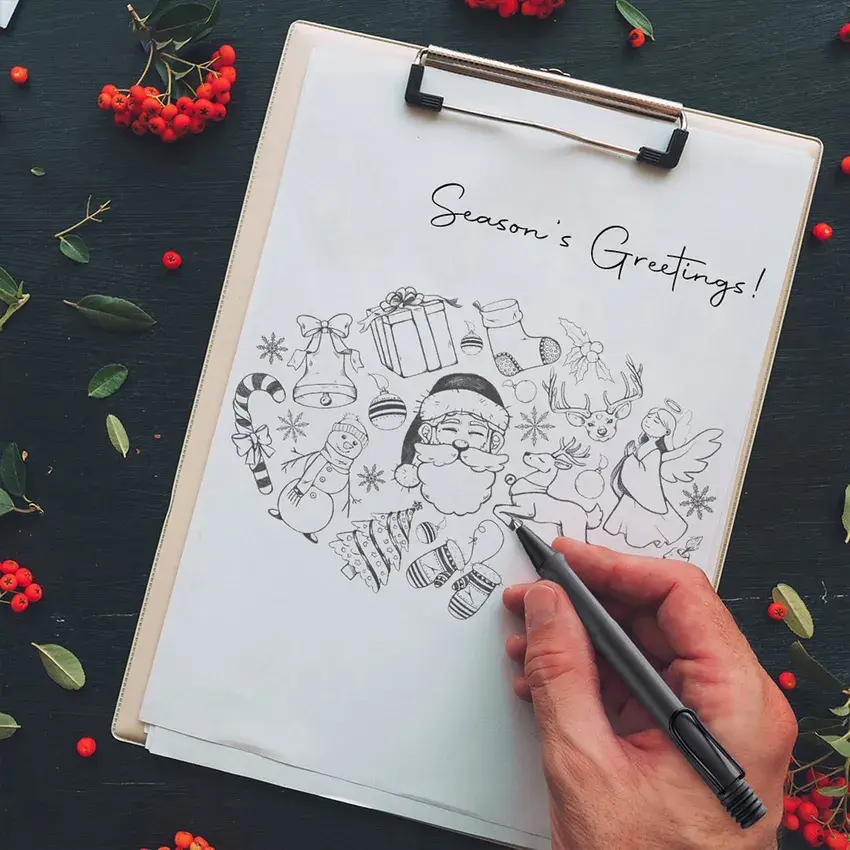 Season's Greetings!